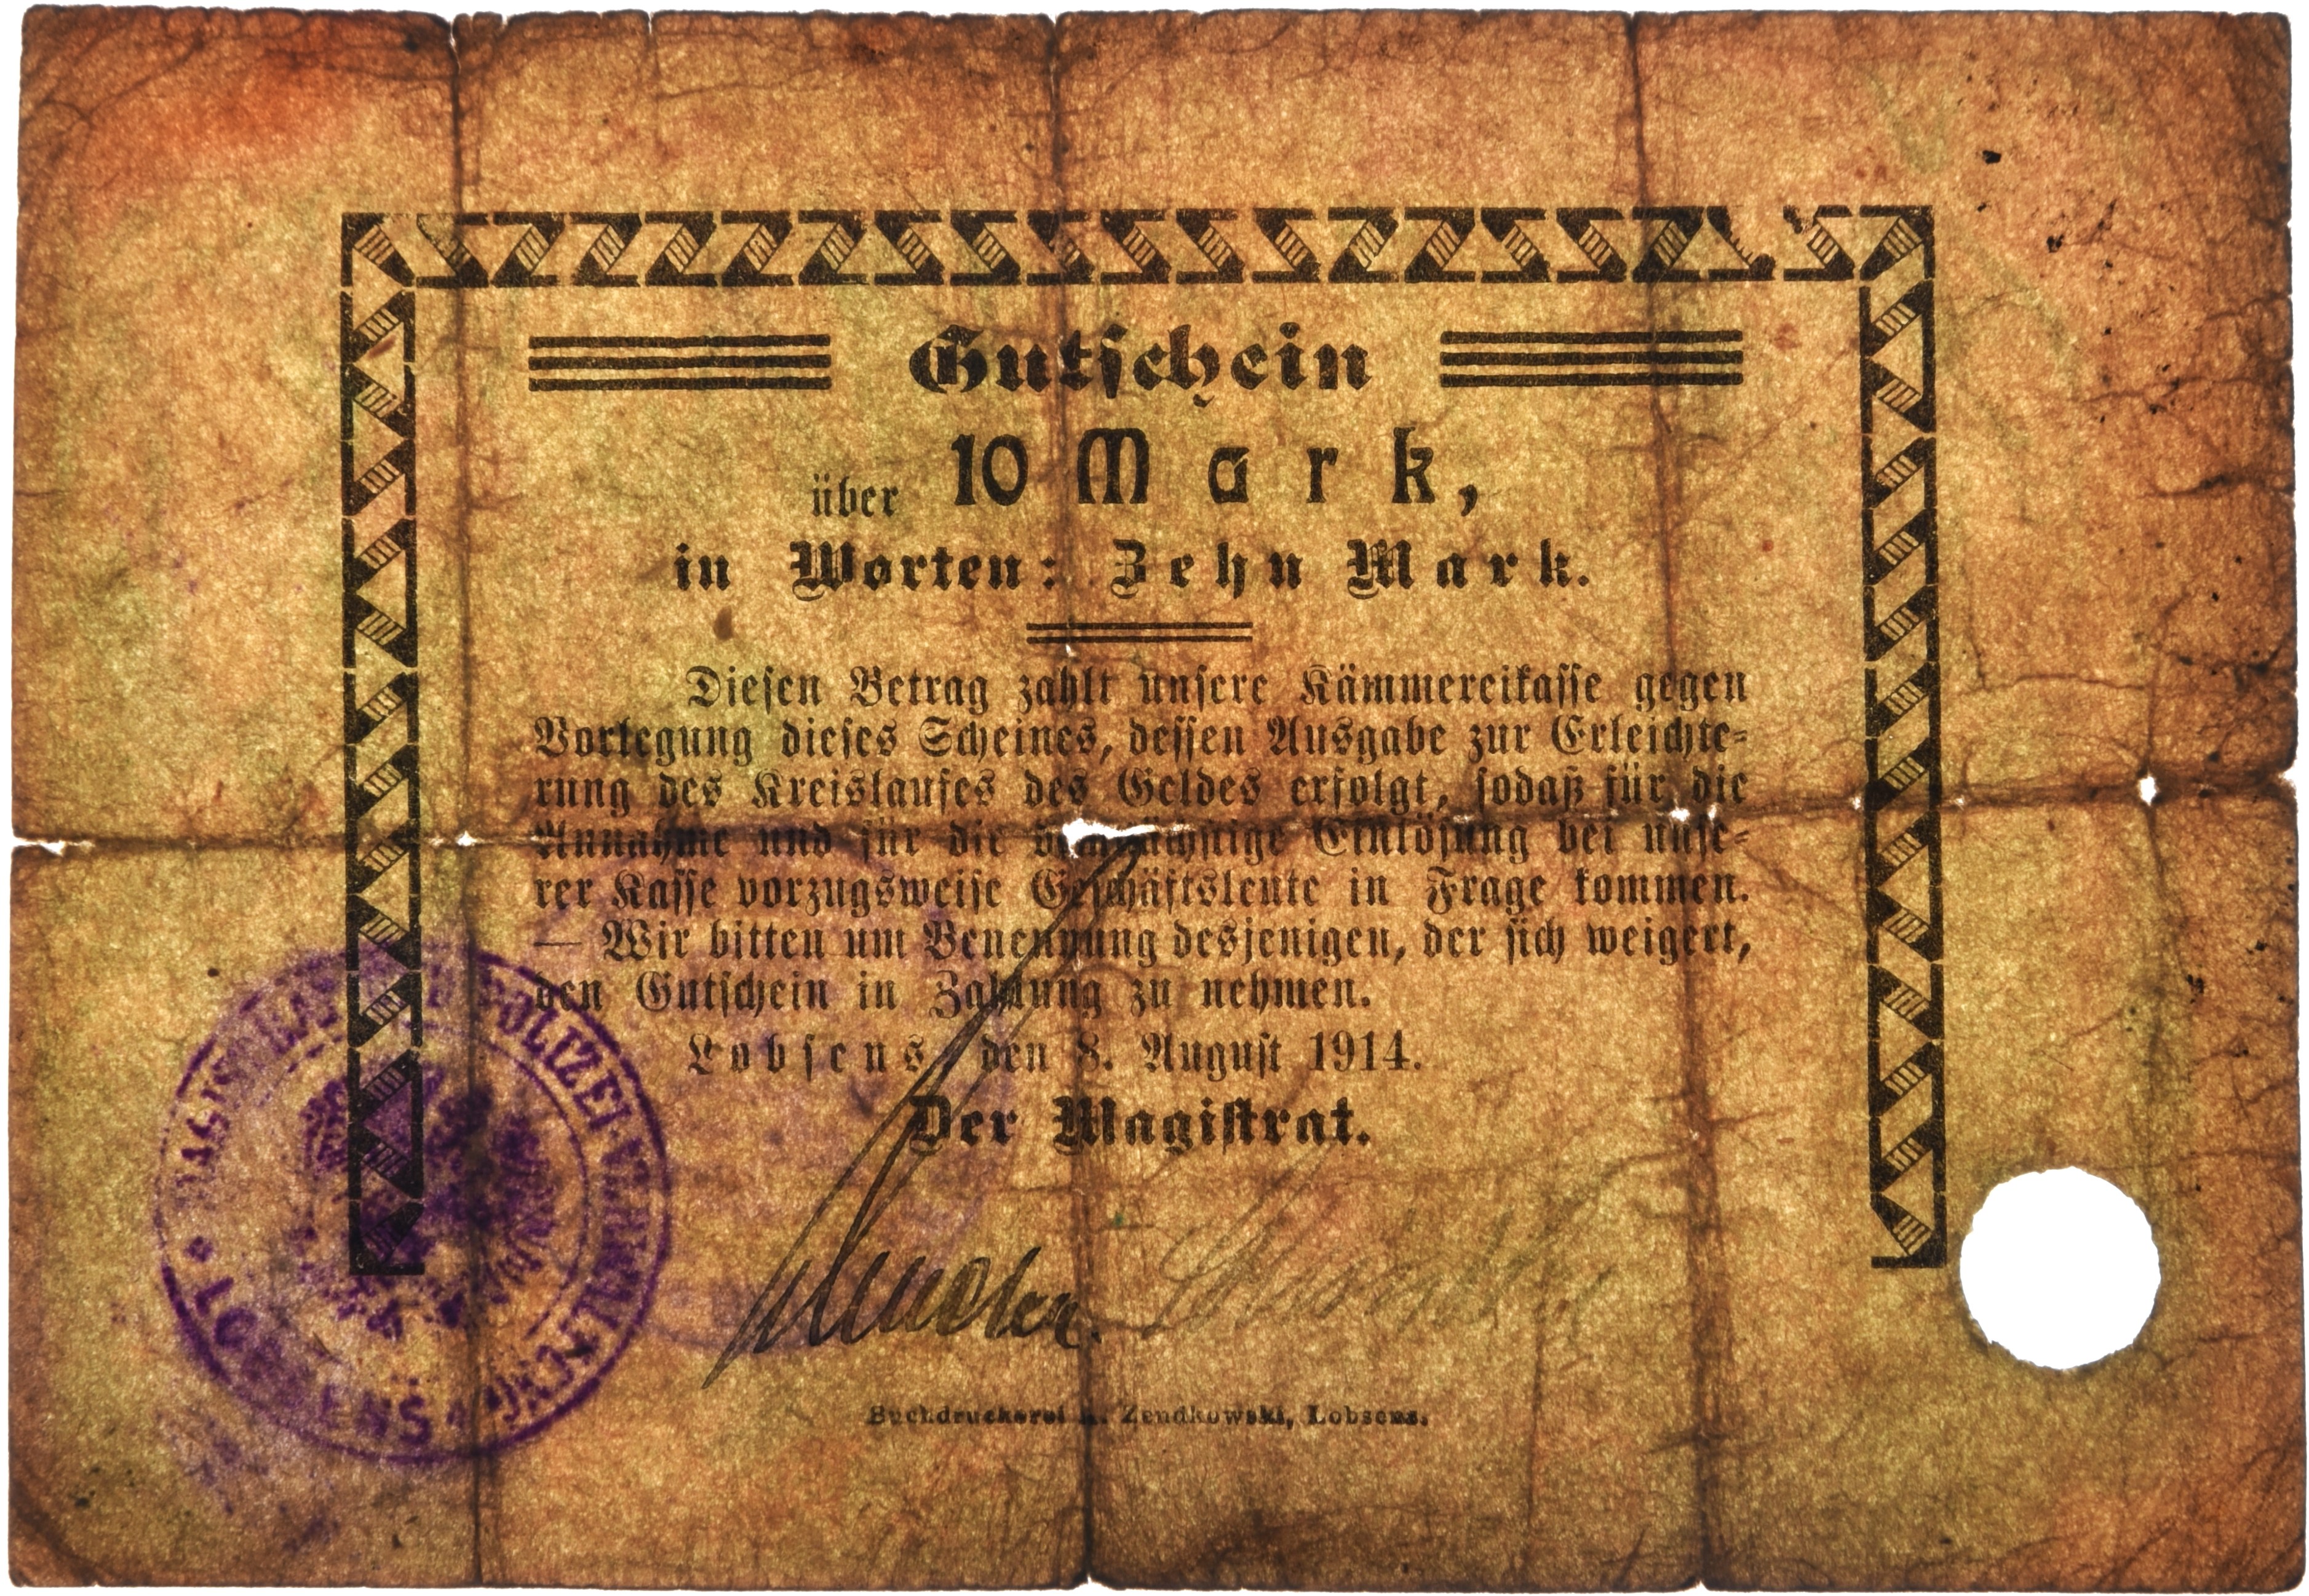 Gutschein
über 10 Mark,
in Worten: Zehn Mark.
Diesen Betrag zahlt unsere Kämmereikasse gegen
Vorlegung dieses Scheines, dessen Ausgabe zur Erleichte-
rung des Kreislaufes des Geldes erfolgt, sodaß für die
Annahme und für die demnächstige Einlösung bei unse-
rer Kasse vorzugsweise Geschäftsleute in Frage kommen.
— Wir bitten um Benennung desjenigen, der sich weigert,
den Gutschein in Zahlung zu nehmen.
Lobsens, den 8. August 1914.
Der Magistrat.
Buchdruckerei A. Zendkowski, Lobsens.
POLIZEI-VERWALTUNG
LOBSENS